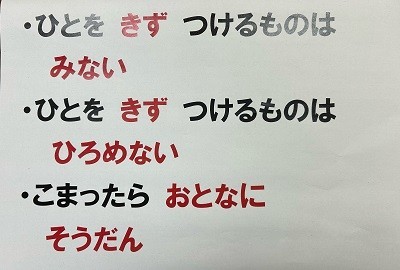 ・ひとを きず つけるものは
みない
・ひとを きず つけるものは
ひろめない
・こまったら おとなに
そうだん